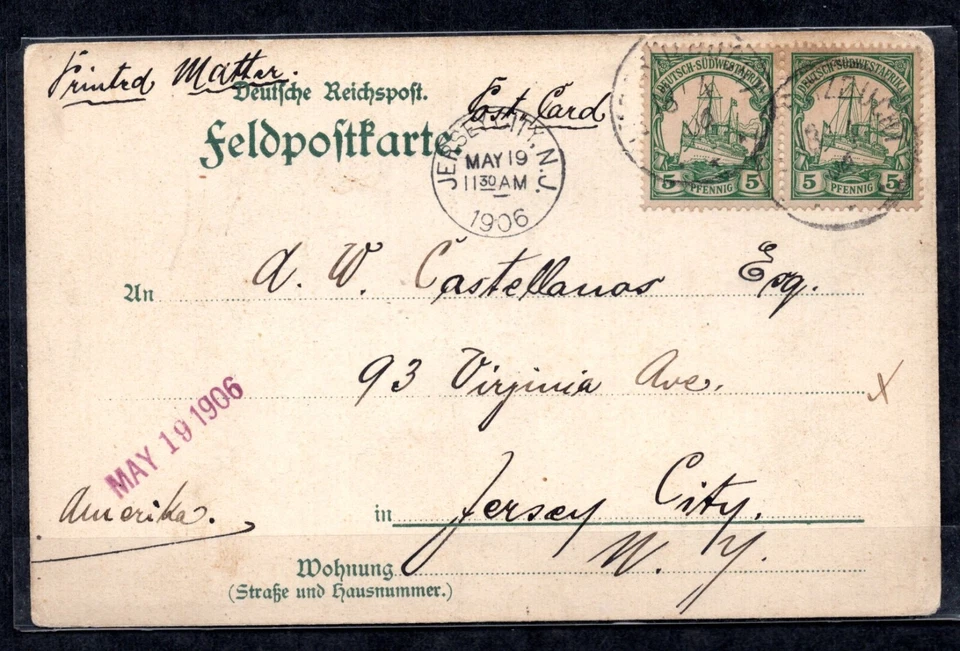 Printed Matter.
Deutsche Reichspost.
Post Card
Feldpostkarte
JERSEY CITY, N.J.
MAY 19
11 30 AM
1906
DEUTSCH-SÜDWESTAFRIKA
5 PFENNIG 5
DEUTSCH-SÜDWESTAFRIKA
5 PFENNIG 5
An A. W. Castellanos Esq.
93 Virginia Ave. X
MAY 19 1906
Amerika.
in Jersey City.
N. Y.
Wohnung
(Straße und Hausnummer.)